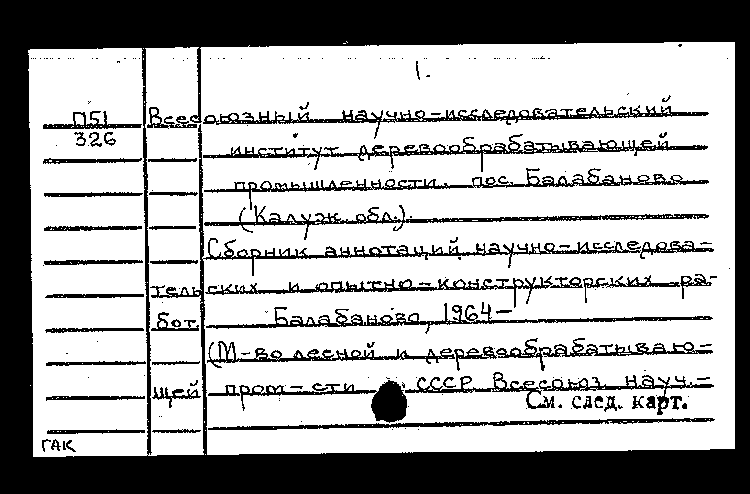 1.
П51 Всесоюзный научно-исследовательский
326
институт деревообрабатывающей
промышленности. пос. Балабаново
(Калуж. обл.).
Сборник аннотаций научно-исследова-
тельских и опытно-конструкторских ра-
бот. Балабаново, 1964-
(М-во лесной и деревообрабатываю-
щей пром-сти СССР Всесоюз. науч.-
См. след. карт.
ГАК